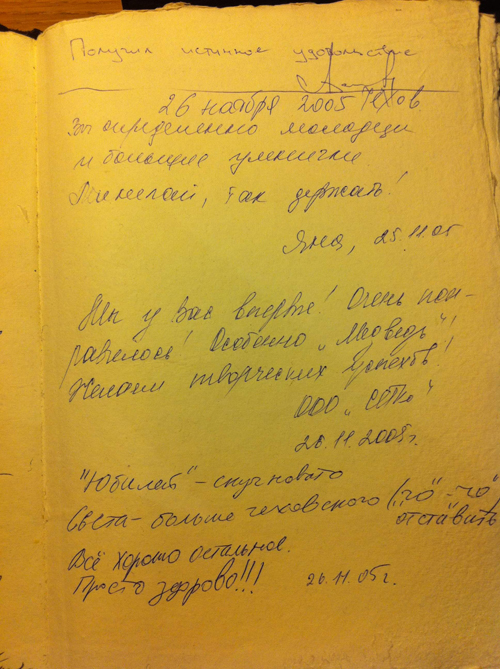 Получил истинное удовольствие
26 ноября 2005 Чехов
определенно молодцы
и большие умнички.
так держать!
Яна, 25.11.05
Мы у Вас впервые! Очень пон-
равилось! Особенно „Медведь“!
Желаем творческих успехов!
ООО
26.11.2005г.
"Юбилей" - скучновато
Света - больше чеховского („чо“ - „чо“
отставить
Всё хорошо остальное.
Просто здорово!!! 26.11.05г.